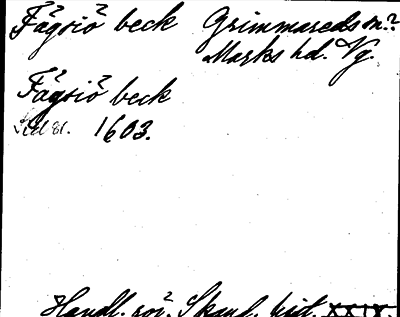 Fägsiö beck Grimmareds sn.?
Marks hd. Vg.
Fägsiö beck
1603.
Handl. rör. Skand. hist. XXIX.